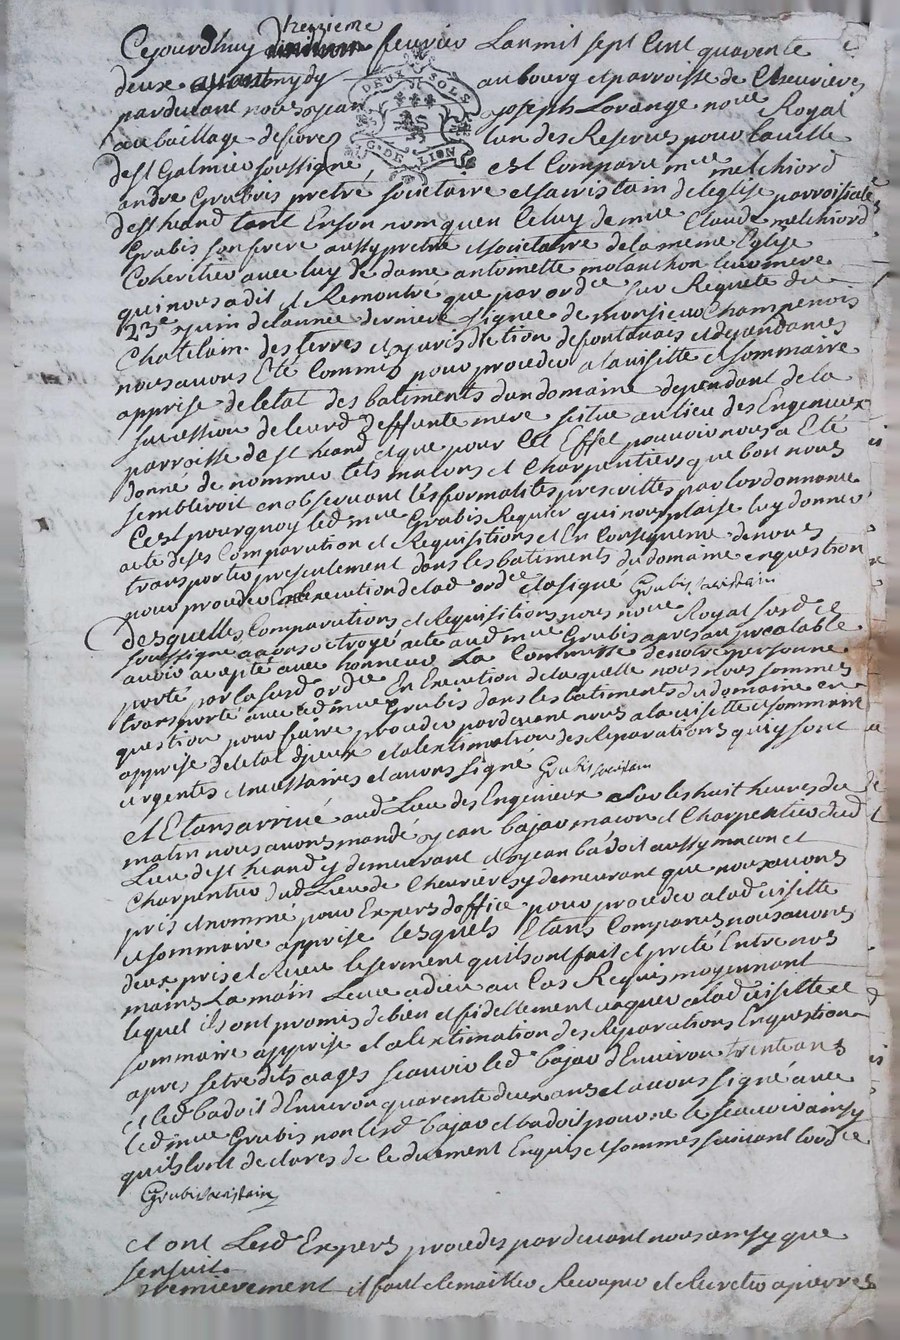 treizieme
Cejourdhuy fevrier Lanmil sept Cent quarente
deux avant mydy au bourg et parroisse de Chevrieres
DEUX SOLS
G. DE LION
pardevant nous jean joseph Lorange nore Royal
au bailliage de forez lun des Reserves pour la ville
de st Galmier soussigné est Comparu mre melchiord
andre Grubis pretre societaire et sacristain de leglise parroissiale
de st heand tant En son nom quen Celuy de mre Claude melchiord
Grubis son frere aussy pretre et societaire de la meme Eglise
Coheritier avec luy de dame antoinette molanchon leur mere
qui nous a dit et Remontré que par ordce sur Requete du
23e juin de lannee derniere signee de monsieur Champenois
Chatelain des terres et jurisdiction de fontanais et dependances
nous avons Eté Commis pour proceder a la visitte et sommaire
apprise de letat des batiments dun domaine dependant de la
succession de leurd deffunte mere situé au lieu des Engenieux
parroisse de st heand et que pour Cet Effet pouvoir nous a Eté
donné de nommer tels macons et Charpentiers que bon nous
sembleroit en observant les formalités prescrittes par lordonnance
Cest pourquoy led mre Grubis Requier quil nous plaise luy donner
acte de ses Comparution et Requisitions et En Consequence de nous
transporter presentement dans les batiments du domaine en question
pour proceder En Execution de lad ordce et a signé Grubis sacristain
Desquelles Comparutions et Requisitions nous nore Royal susd et
soussigné avons octroyé acte aud mre Grubis apres au prealable
avoir accepté avec honneur La Commission de notre personne
porté par la susd ordce En Execution de laquelle nous nous sommes
transporté avec led mre Grubis dans les batiments du domaine en
question pour faire proceder pardevant nous a la visitte et sommaire
apprise de letat diceux et a lextimation des Reparations qui y sont
urgentes et necessaires et avons signé Grubis sacristain
Et Etans arrivé aud Lieu des Engenieux sur les huit heures du
matin nous avons mandé jean bajar macon et Charpentier dud
Lieu de st heand y demeurant et jean badoit aussy macon et
Charpentier dud Lieu de Chevrieres y demeurant que nous avons
pris et nommé pour Expers doffice pour proceder a lad visitte
et sommaire apprise lesquels Etans Comparus nous avons
deux pris et Receu le serment quils ont fait et preté Entre nos
mains La main Levee a dieu au Cas Requis moyennant
lequel ils ont promis de bien et fidellement vaquer a lad visitte et
sommaire apprise et a lextimation des Reparations En question
apres setre dits ages scavoir led bajar d'Environ trente ans
et led badoit d'Environ quarente deux ans et avons signé avec
led mre Grubis non lesd bajar et badoit pour ne le scavoir ainsy
quils lont declares de ce duement Enquis et sommes suivant lordce
Grubis sacristain
Et ont Lesd Expers procedes pardevant nous ainsy que
sensuit
Premierement il faut Remaitter Recouper et Recreter a pierres